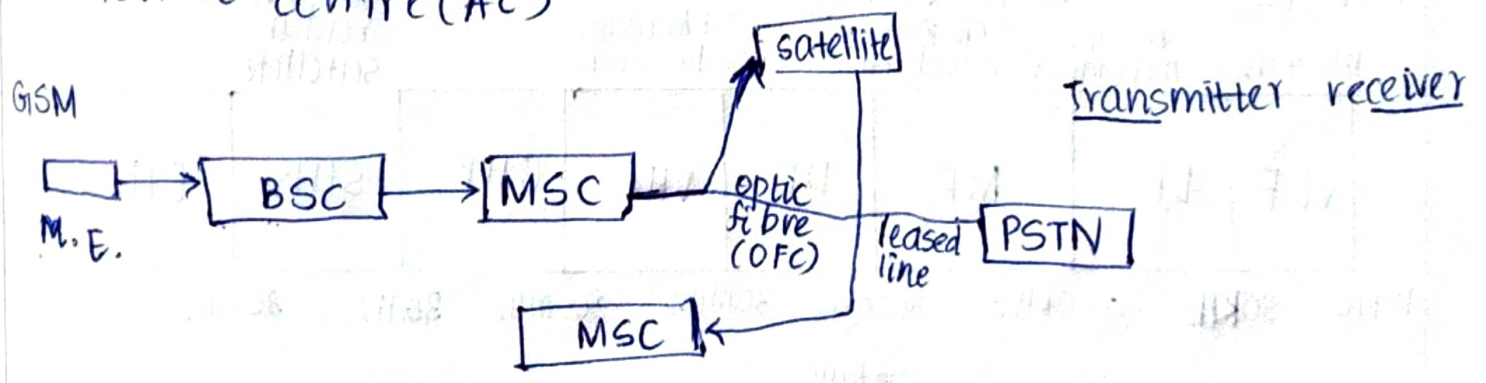 centre (AC)
satellite
Transmitter receiver
GSM
BSC
MSC
optic
fibre
(OFC)
leased
line
PSTN
M.E.
MSC